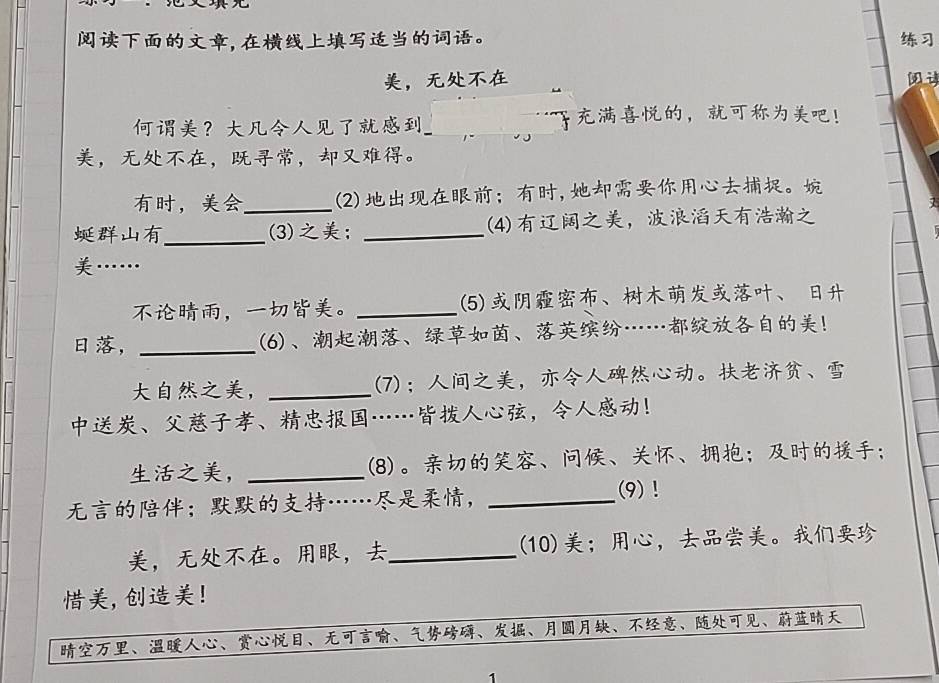 阅读下面的文章,在横线上填写适当的词语。
美，无处不在
何谓美？大凡令人见了就感到 充满喜悦的，就可称为美吧!
美，无处不在，既寻常，却又难得。
有时，美会________(2)地出现在眼前；有时,她却需要你用心去捕捉。婉
蜒群山有________(3)之美；________(4)有辽阔之美，波浪滔天有浩瀚之
美……
不论晴雨，一切皆美。________(5)或阴霾密布、树木萌发或落叶、日升
日落，________(6)、潮起潮落、绿草如茵、落英缤纷……都绽放各自的美!
大自然之美，________(7)；人间之美，亦令人砰然心动。扶老济贫、雪
中送炭、父慈子孝、精忠报国……皆拨人心弦，令人感动!
生活之美，________(8)。亲切的笑容、问候、关怀、拥抱；及时的援手；
无言的陪伴；默默的支持……尽是柔情，________(9)!
美，无处不在。用眼，去________(10)美；用心，去品尝美。我们要珍
惜美,创造美!
晴空万里、温暖人心、赏心悦目、无可言喻、气势磅礴、发掘、月圆月缺、不经意、随处可见、蔚蓝晴天
1
练习
阅读